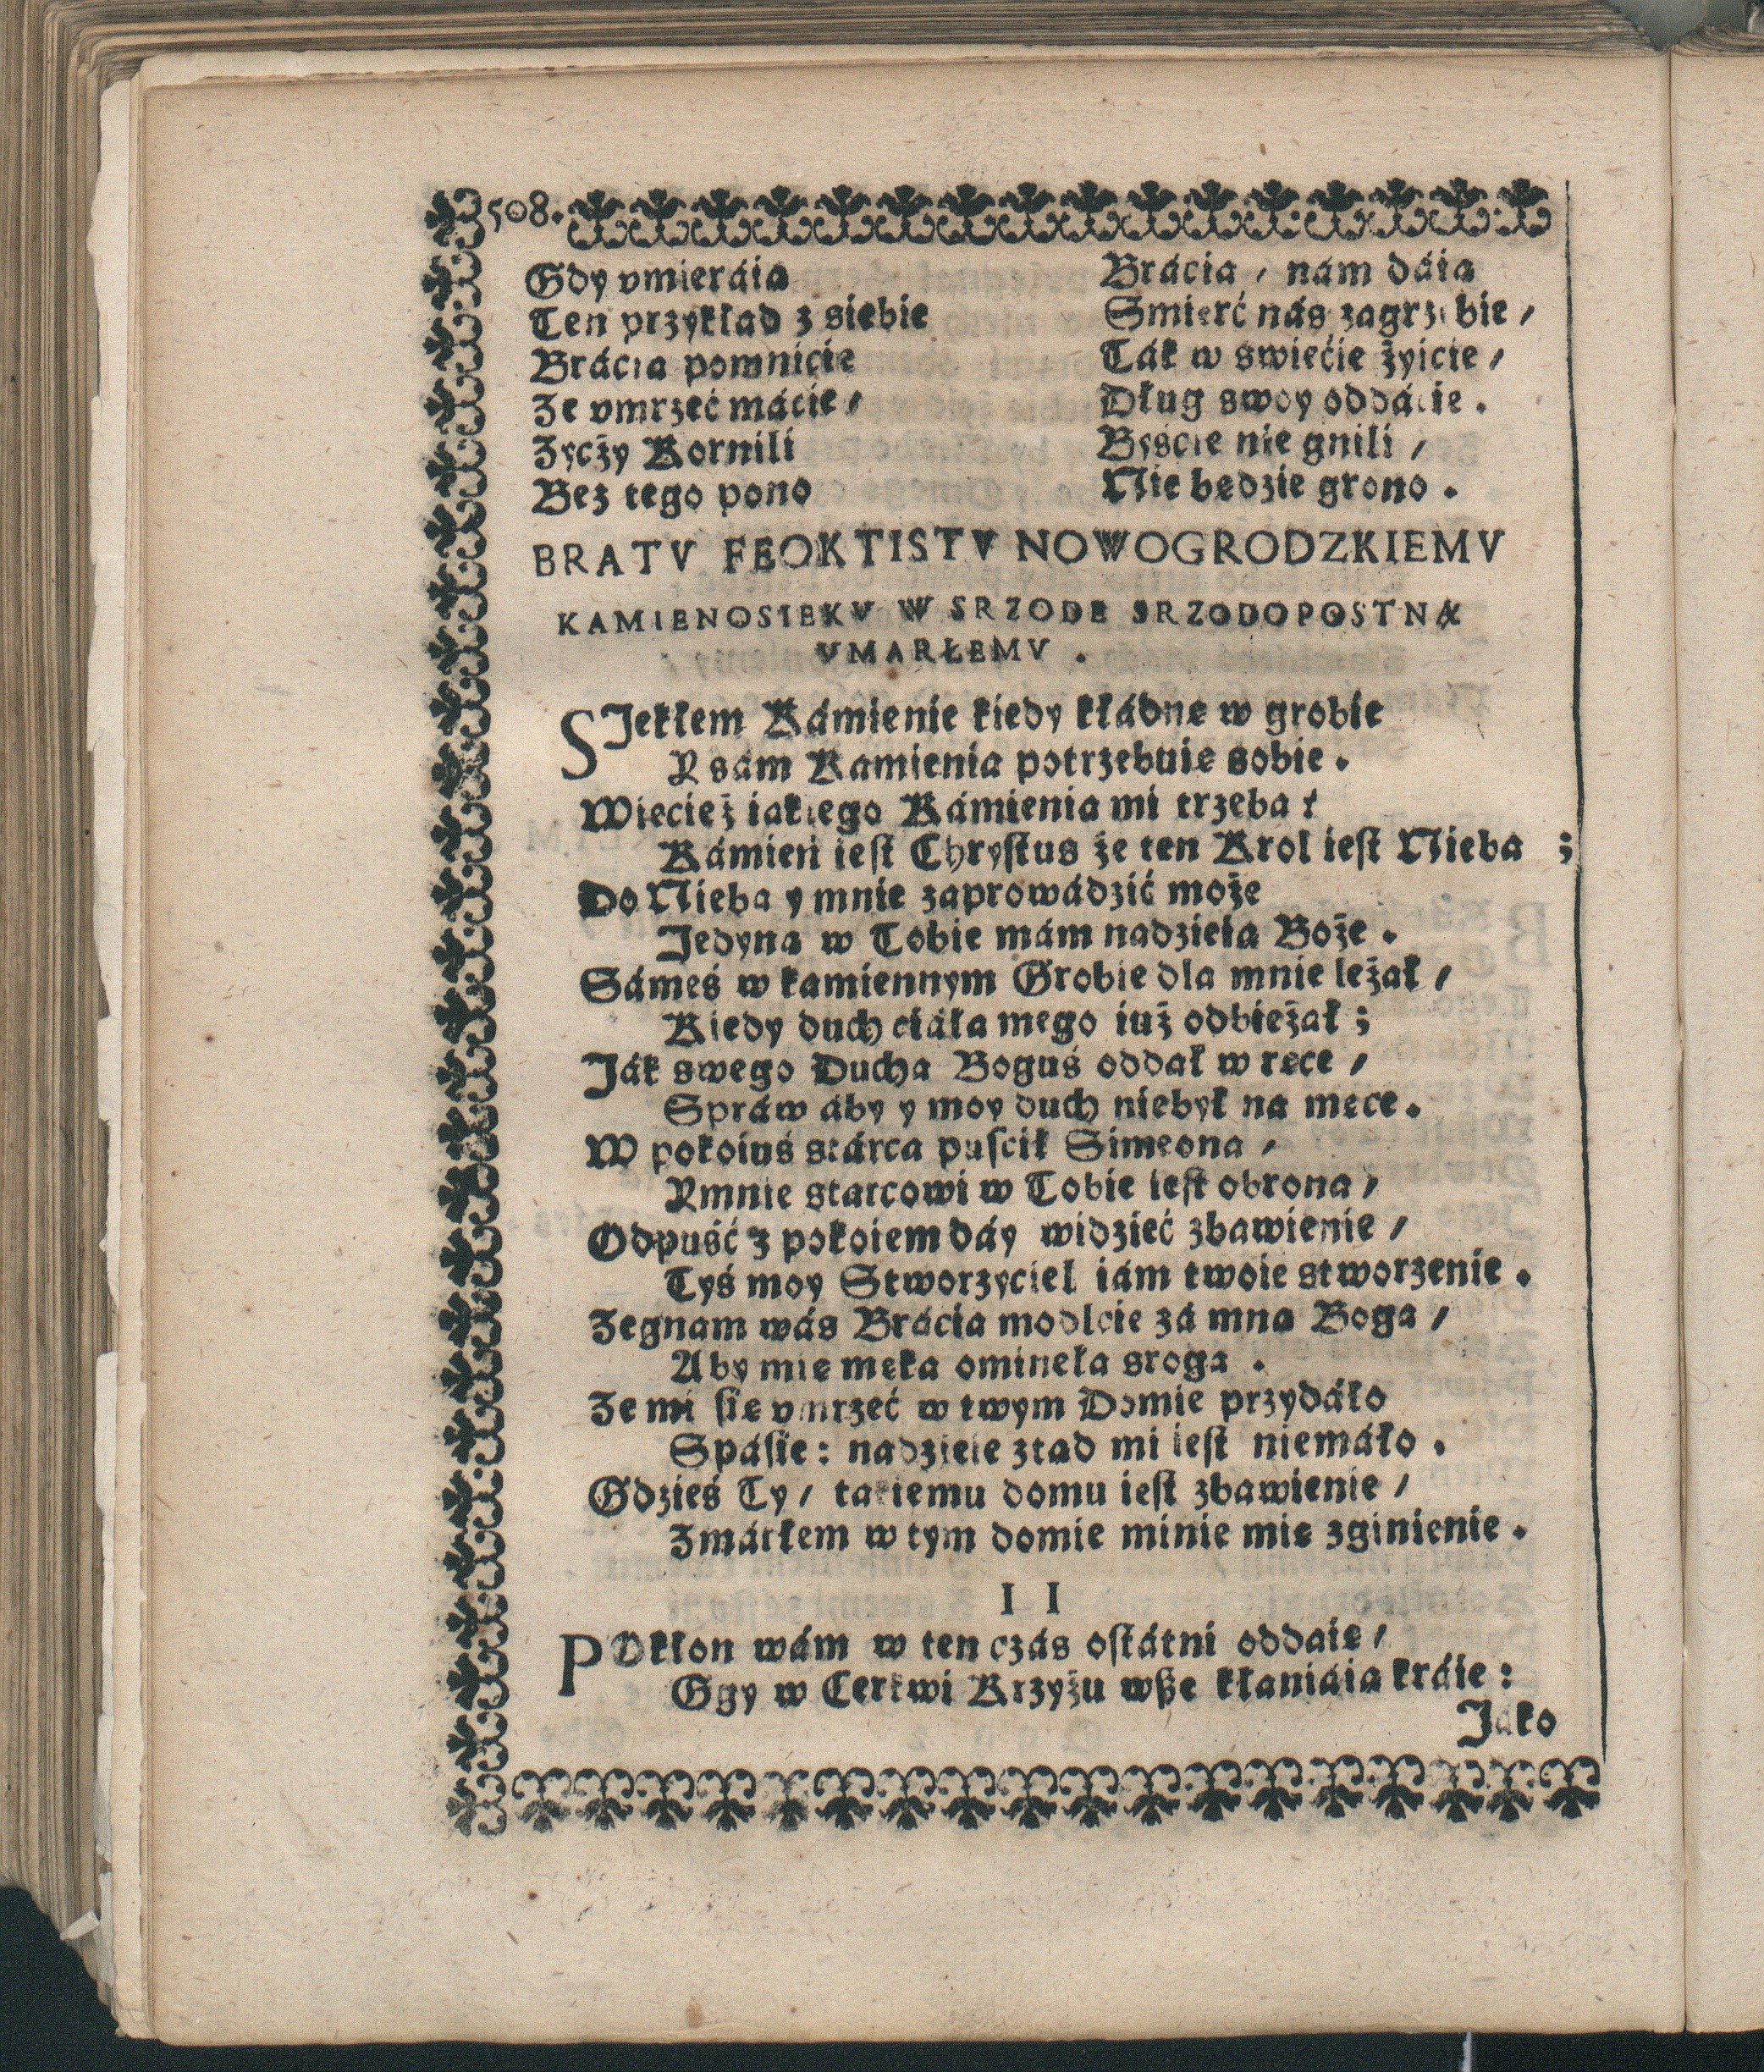 508.
Gdy vmieráią Brácia / nám dáią
Ten przykład z siebie Smierć nás zagrzebie /
Brácia pomnicie Ták w swiećie żyicie /
Ze vmrzeć mácie / Dług swoy oddácie .
Zyczy Kornili Byscie nie gnili /
Bez tego pono Nie będzie grono .
BRATV FEOKTISTV NOWOGRODZKIEMV
KAMIENOSIEKV W SRZODE SRZODOPOSTNĄ
VMARŁEMV .
SJekłem Kámienie kiedy kłádnę w grobie
Y sám Kamienia potrzebuię sobie .
Wiecież iakiego Kámienia mi trzeba ?
Kámień iest Chrystus że ten Krol iest Nieba ;
Do Nieba y mnie zaprowádzić może
Jedyna w Tobie mám nadzieia Boże .
Sámeś w kamiennym Grobie dla mnie leżał /
Kiedy duch ciáła mego iuż odbieżał ;
Ják swego Ducha Boguś oddał w ręce /
Spráw áby y moy duch niebył na męce .
W pokoiuś stárca puścił Simeona /
Y mnie starcowi w Tobie iest obrona /
Odpuść z pokoiem dáy widzieć zbawienie /
Tyś moy Stworzyciel iám twoie stworzenie .
Zegnam wás Brácia modlcie zá mną Boga /
Aby mię męka ominęła sroga .
Ze mi się vmrzeć w twym Domie przydáło
Spásie : nadzieie ztąd mi iest niemáło .
Gdzieś Ty / takiemu domu iest zbawienie /
Zmárłem w tym domie minie mię zginienie .
I I
POkłon wám w ten czás ostátni oddaię /
Ggy w Cerkwi Krzyżu wße kłaniáią kráie :
Jáko